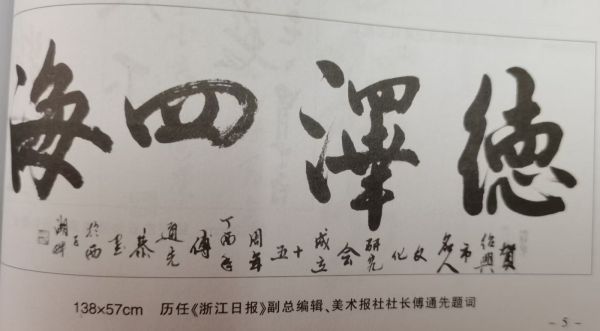 德澤四海
賀绍興市名人文化研究会成立十五周年丁酉年傅通先恭書於西子湖畔
138×57cm 历任《浙江日报》副总编辑、美术报社社长傅通先题词
- 5 -